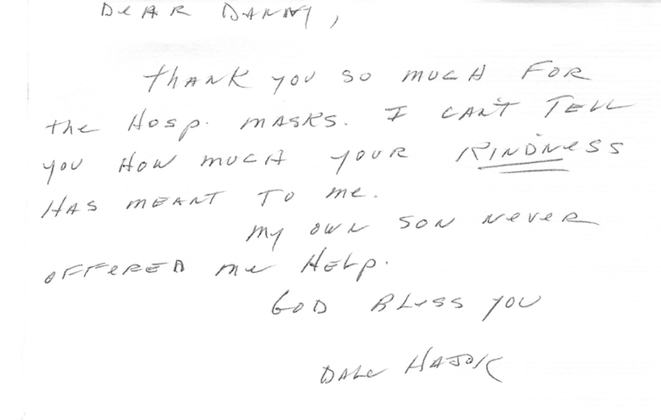 Dear Danny,
Thank you so much for
the Hosp. masks. I can't tell
you how much your kindness
has meant to me.
My own son never
offered me help.
God Bless you
Dale Hajok